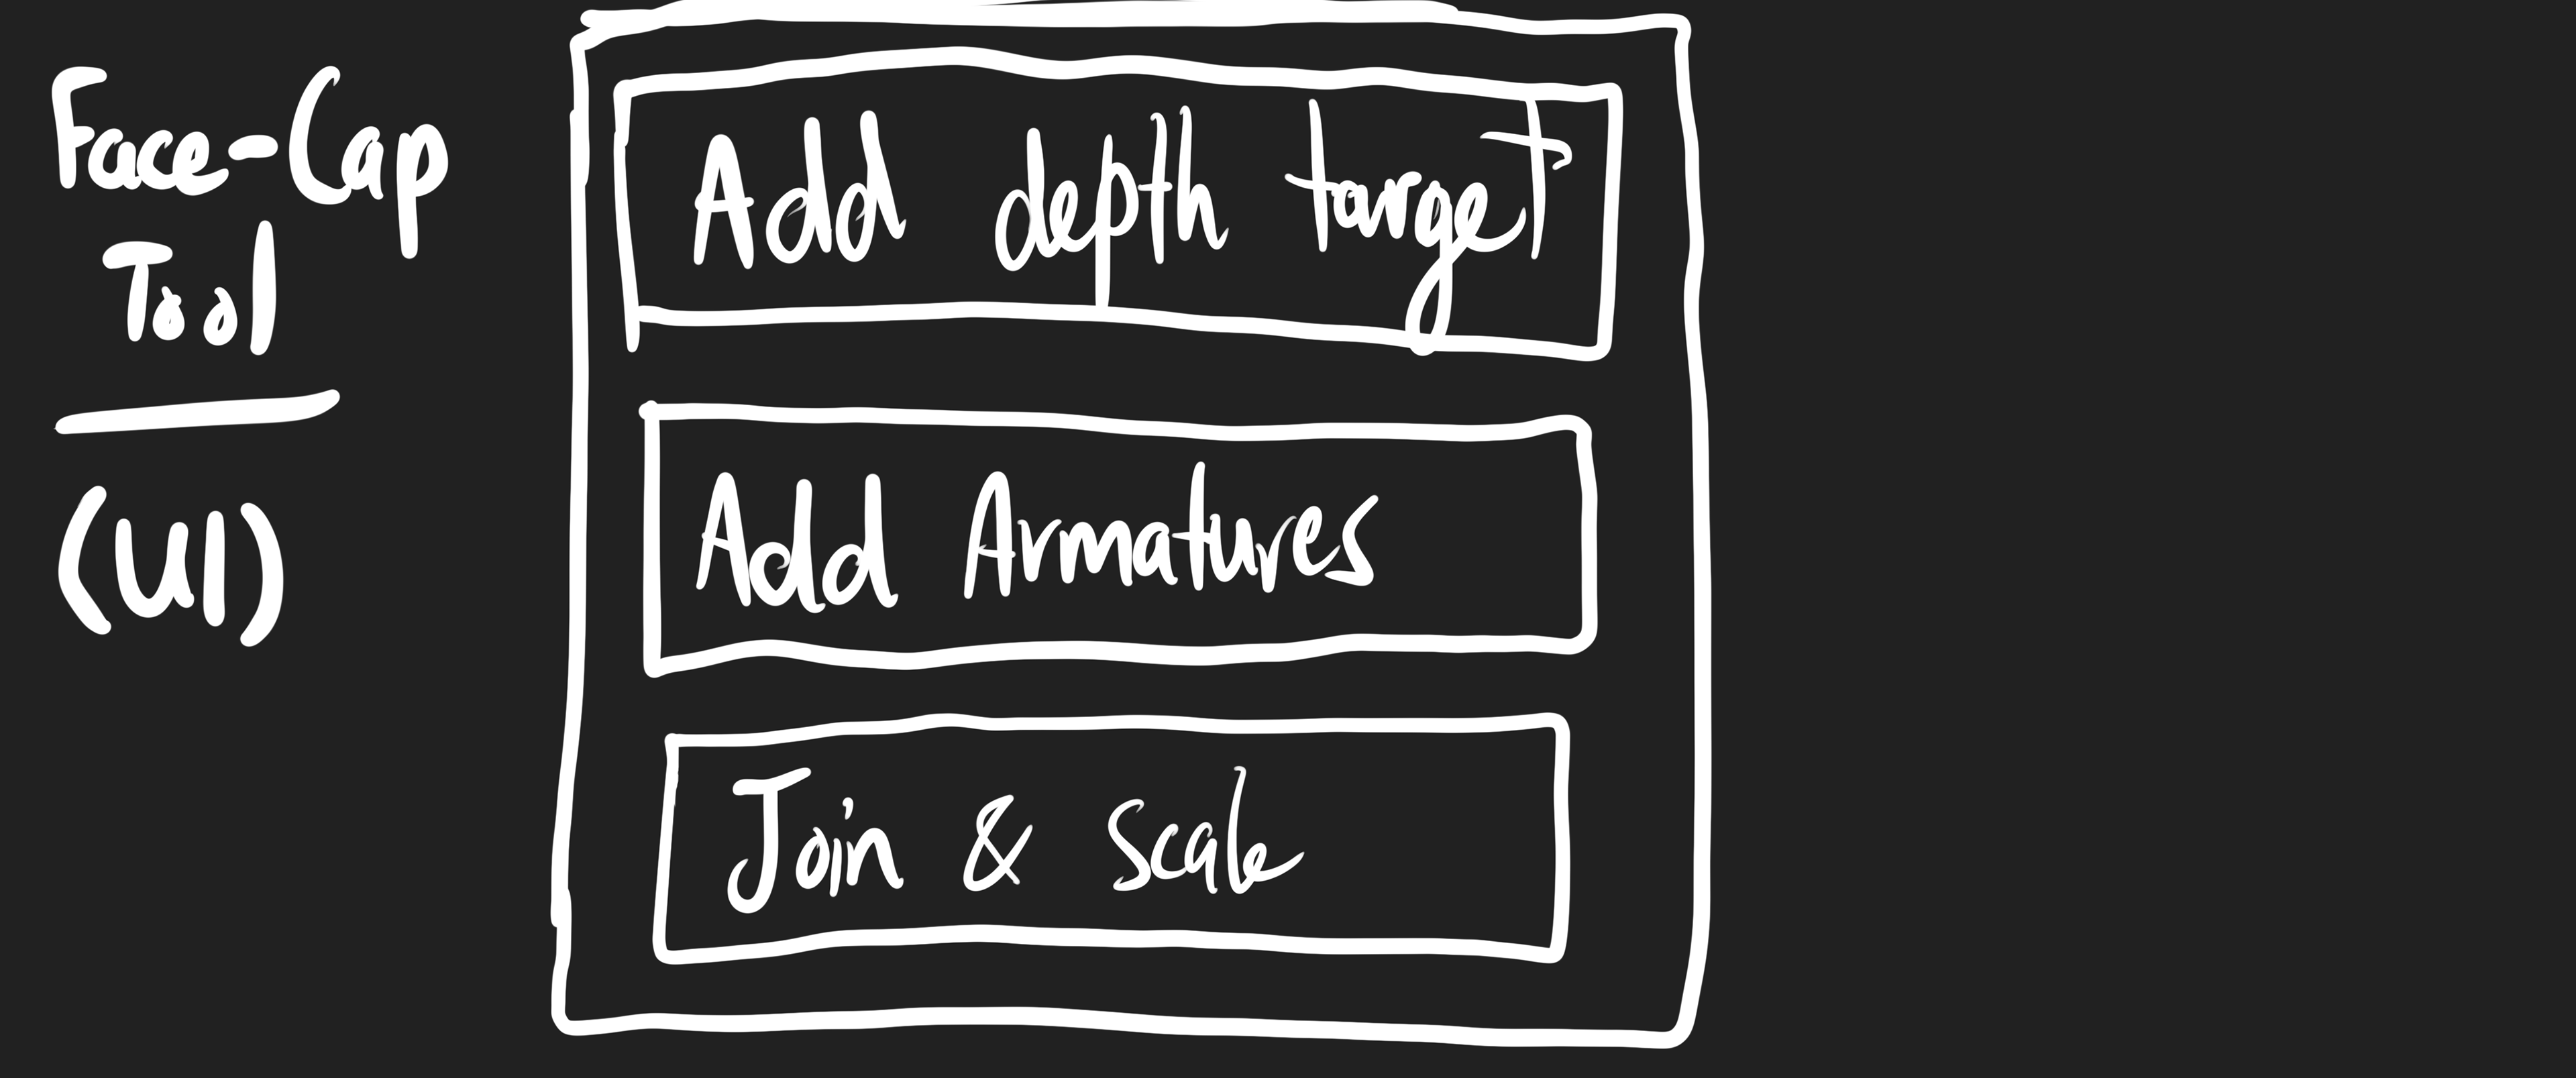 Face-Cap
Tool
(UI)
Add depth target
Add Armatures
Join & Scale